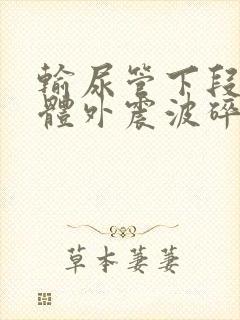 輸尿管下段
體外震波碎
草本萋萋